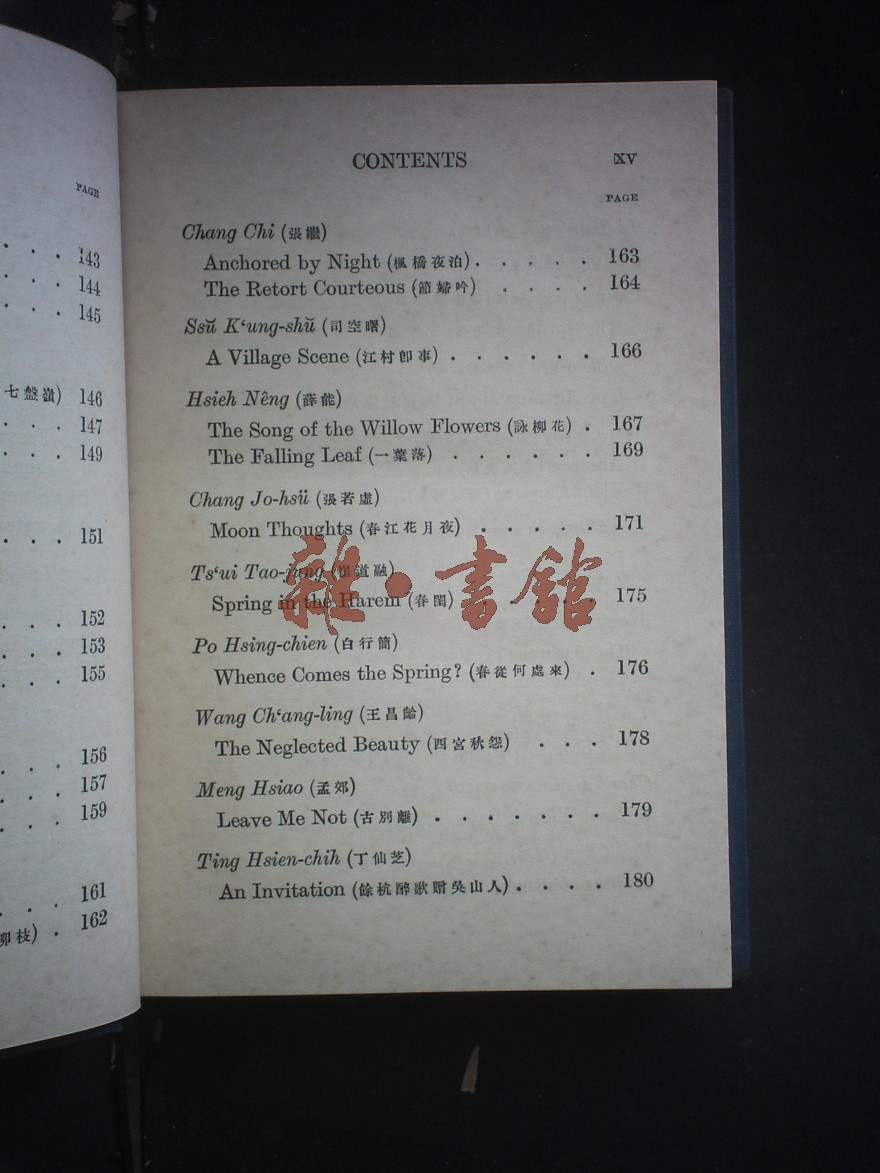 PAGE
143
144
145
七盤嶺) 146
147
149
151
152
153
155
156
157
159
161
柳枝) . 162
CONTENTS XV
PAGE
Chang Chi (張繼)
Anchored by Night (楓橋夜泊) . . . . . 163
The Retort Courteous (節婦吟) . . . . 164
Ssŭ K‘ung-shŭ (司空曙)
A Village Scene (江村卽事) . . . . . . 166
Hsieh Nêng (薛能)
The Song of the Willow Flowers (詠柳花) . 167
The Falling Leaf (一葉落) . . . . . . 169
Chang Jo-hsü (張若虛)
Moon Thoughts (春江花月夜) . . . . . 171
Ts‘ui Tao-jung (崔道融)
Spring in the Harem (春閨) . . . . . 175
Po Hsing-chien (白行簡)
Whence Comes the Spring? (春從何處來) . 176
Wang Ch‘ang-ling (王昌齡)
The Neglected Beauty (西宮秋怨) . . . 178
Meng Hsiao (孟郊)
Leave Me Not (古別離) . . . . . . . 179
Ting Hsien-chih (丁仙芝)
An Invitation (餘杭醉歌贈吳山人) . . . . 180
雜·書館